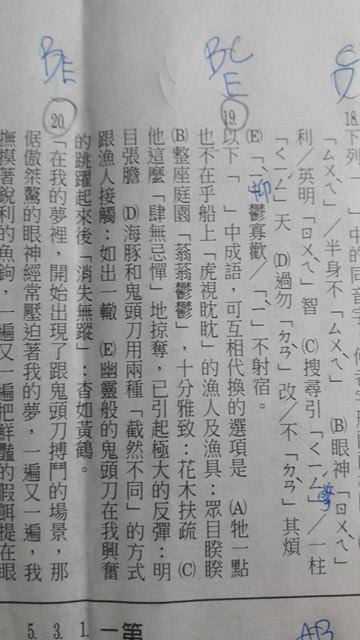 CD
18.
下列「　」中的同音字，
「ㄙㄨㄟˋ」／半身不「ㄙㄨㄟˋ」　(B)眼神「ㄖㄨㄟˋ」
利／英明「ㄖㄨㄟˋ」智　(C)搜尋引「ㄑㄧㄥˊ」／一柱
「ㄑㄧㄥˊ」天　(D)過勿「ㄉㄢˋ」改／不「ㄉㄢˋ」其煩
(E)「ㄧˋ」鬱寡歡／「ㄧˋ」不射宿。
抑
擎
BC
E
19.
以下「　」中成語，可互相代換的選項是　(A)牠一點
也不在乎船上「虎視眈眈」的漁人及漁具：眾目睽睽
(B)整座庭園「蓊蓊鬱鬱」，十分雅致：花木扶疏　(C)
他這麼「肆無忌憚」地掠奪，已引起極大的反彈：明
目張膽　(D)海豚和鬼頭刀用兩種「截然不同」的方式
跟漁人接觸：如出一轍　(E)幽靈般的鬼頭刀在我興奮
的跳躍起來後「消失無蹤」：杳如黃鶴。
BE
20.
「在我的夢裡，開始出現了跟鬼頭刀搏鬥的場景，那
倨傲桀驁的眼神經常壓迫著我的夢，一遍又一遍，我
撫摸著銳利的魚鉤，一遍又一遍把鮮豔的假餌提在眼
AB
第一
1.
3.
5.